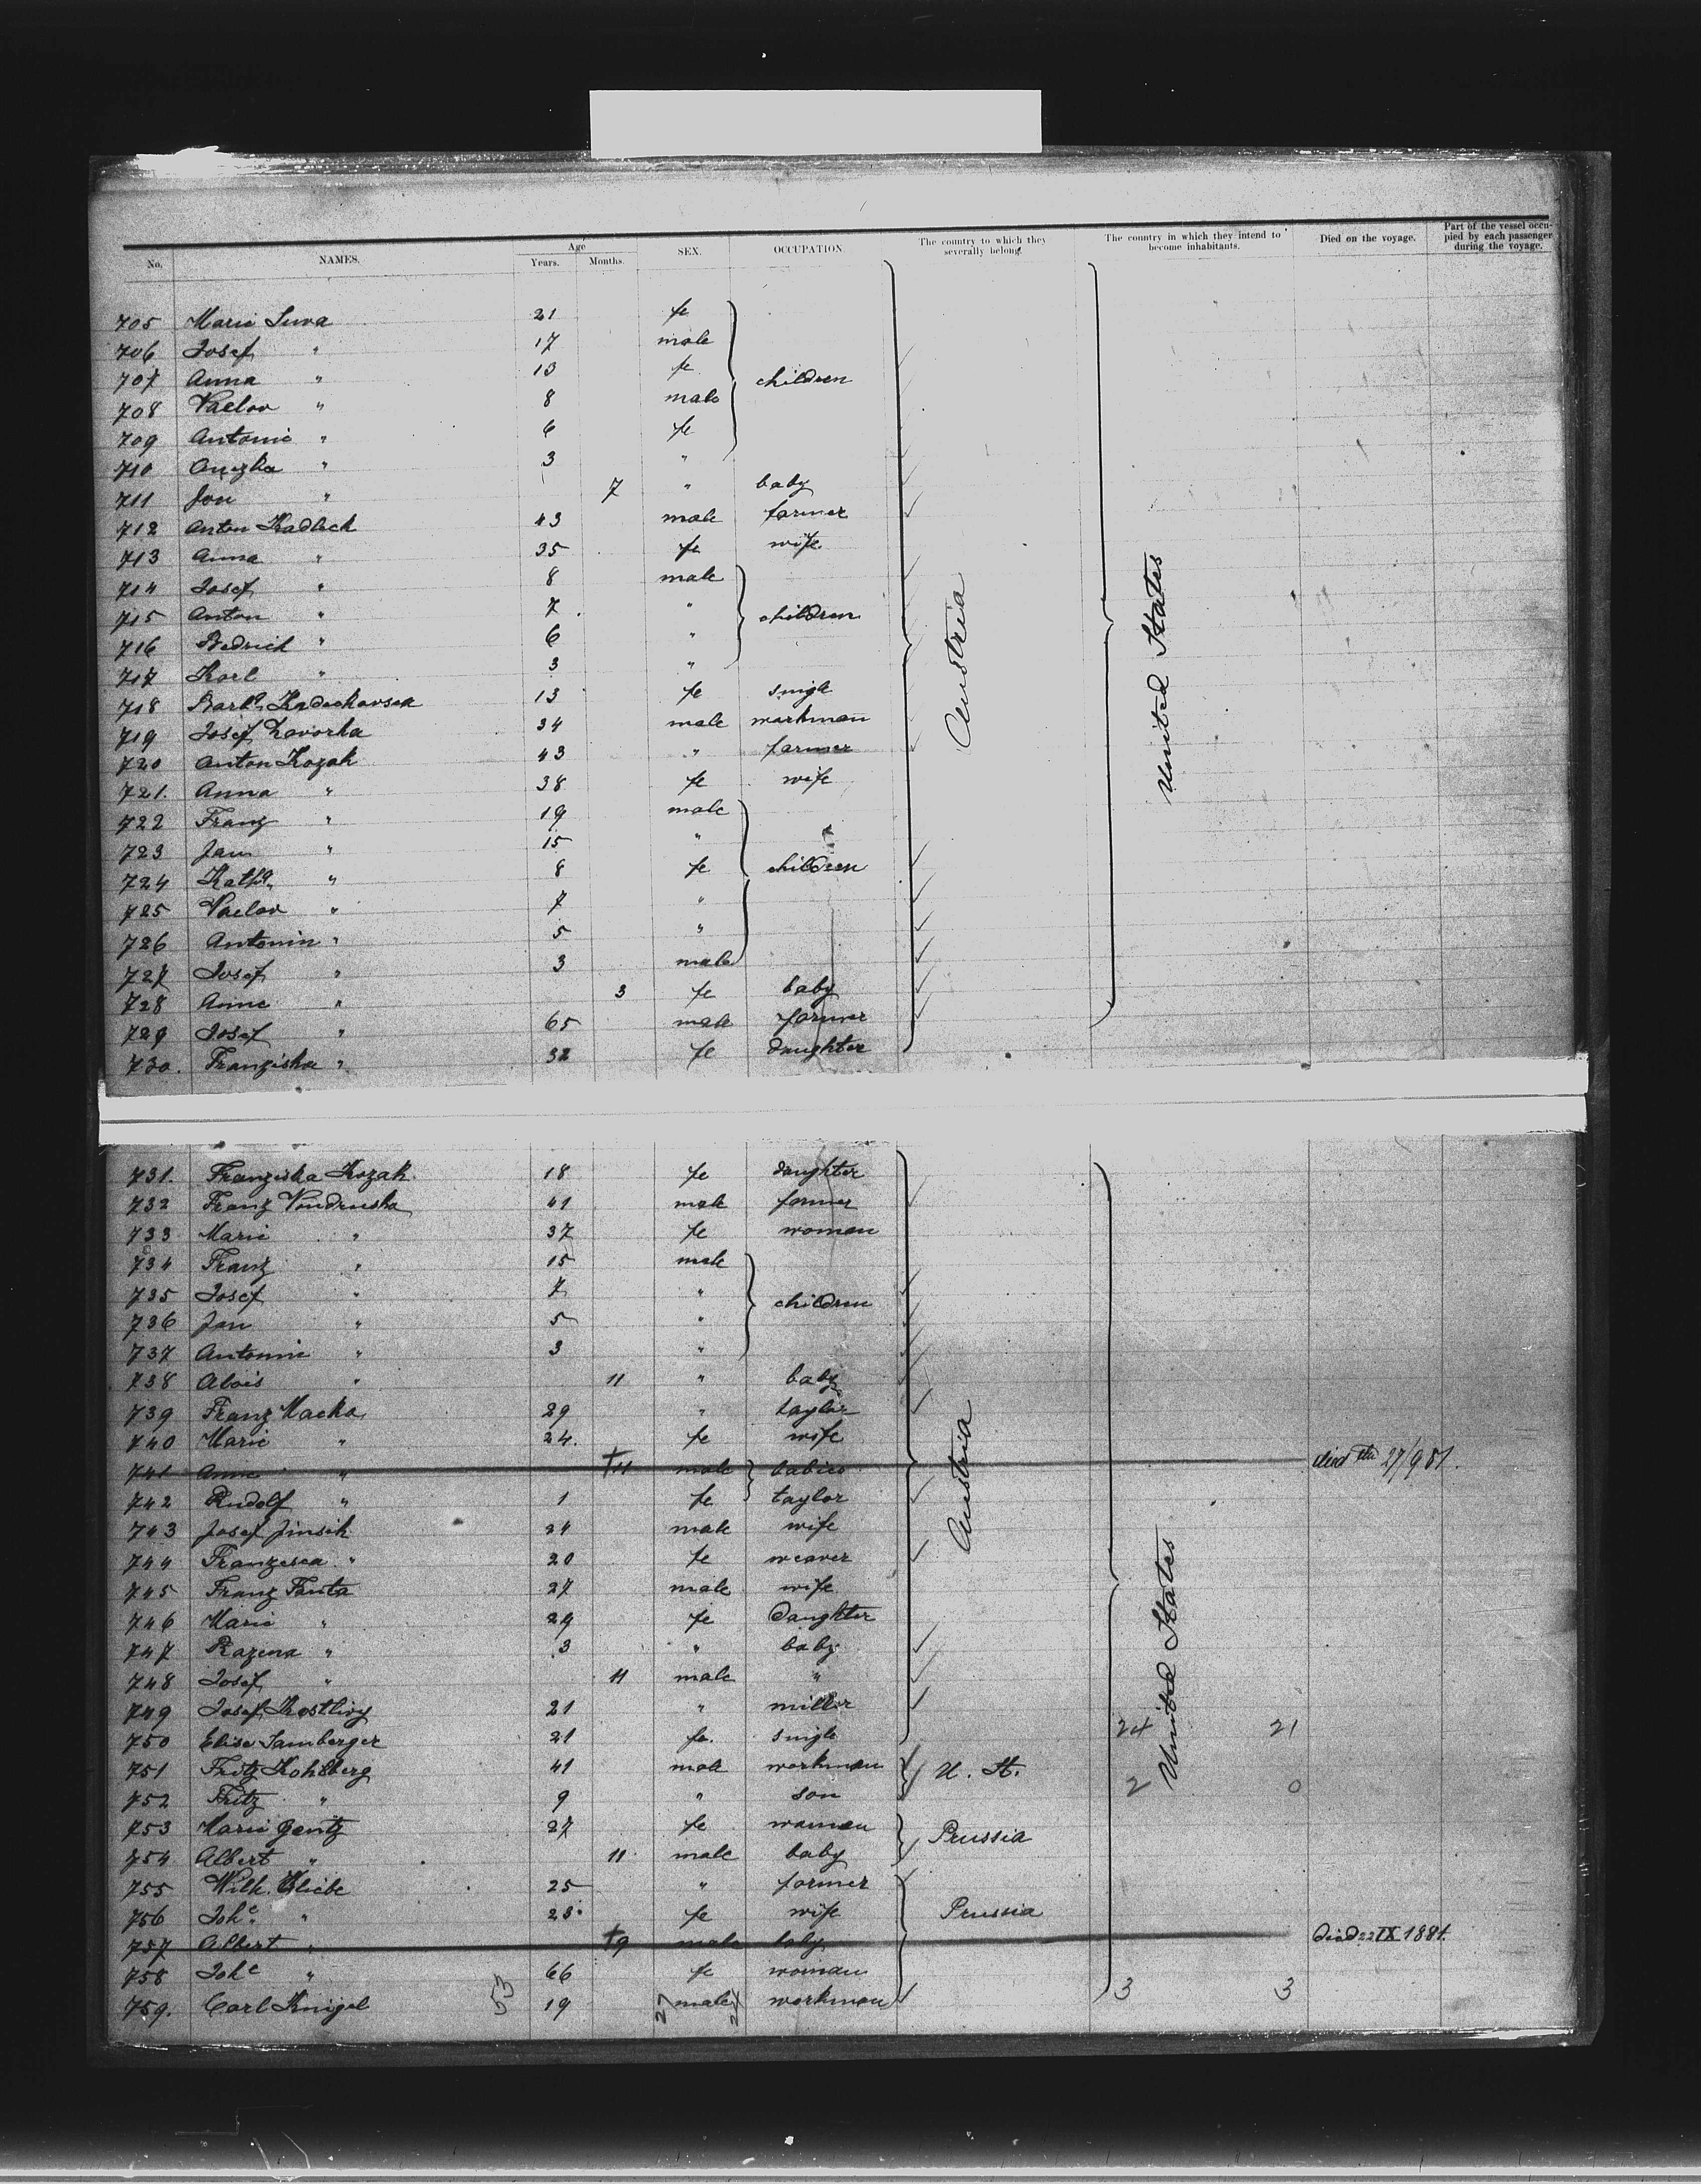 No. NAMES. Age Years. Months. SEX. OCCUPATION. The country to which they severally belong. The country in which they intend to become inhabitants. Died on the voyage. Part of the vessel occupied by each passenger during the voyage.
705 Marie Suva 21 fe
706 Josef " 17 male
707 Anna " 13 fe children
708 Vaclav " 8 male
709 Antonie " 6 fe
710 Anezka " 3 "
711 Jon " 7 " baby
712 Anton Kadleck 43 male farmer
713 Anna " 35 fe wife
714 Josef " 8 male
715 Anton " 7 " children
716 Bedrich " 6 "
717 Karl " 3 "
718 Barb. 13 fe single
719 Josef Zavorka 34 male workman
720 Anton Kozak 43 " farmer
721. Anna " 38 fe wife
722 Franz " 19 male
723 Jan " 15 "
724 Katha. " 8 fe children
725 Vaclav " 7 "
726 Antonin " 5 "
727 Josef " 3 male
728 Anna " 3 fe baby
729 Josef " 65 male farmer
730. Franziska " 32 fe daughter
Austria
United States
731. Franziska Kozak 18 fe daughter
732 Franz Vondruska 41 male farmer
733 Marie " 37 fe woman
734 Franz " 15 male
735 Josef " 7 " children
736 Jan " 5 "
737 Antonin " 3 "
738 Alois " 11 " baby
739 Franz Macka 29 " taylor
740 Marie " 24. fe wife
741 Anna " †11 male babies died 27/9 81.
742 Rudolf " 1 fe taylor
743 Josef Jinsik 24 male wife
744 Franzesca " 20 fe weaver
745 Franz Fanta 27 male wife
746 Marie " 29 fe daughter
747 Razena " 3 " baby
748 Josef " 11 male "
749 Josef Kostlivy 21 " miller
750 Elise Samberger 21 fe. single 24 21
751 Fritz Kohlberg 41 male workman U. St.
752 Fritz " 9 " son 2 0
753 Marie Gentz 27 fe woman Prussia
754 Albert " 11 male baby
755 Wilh. Kliebe 25 " farmer
756 Johe. " 23 fe wife Prussia
757 Albert " †9 male baby died 22 IX 1881.
758 Johe " 66 fe woman
759. Carl Knigel 53 19 27 male workman 3 3
Austria
United States